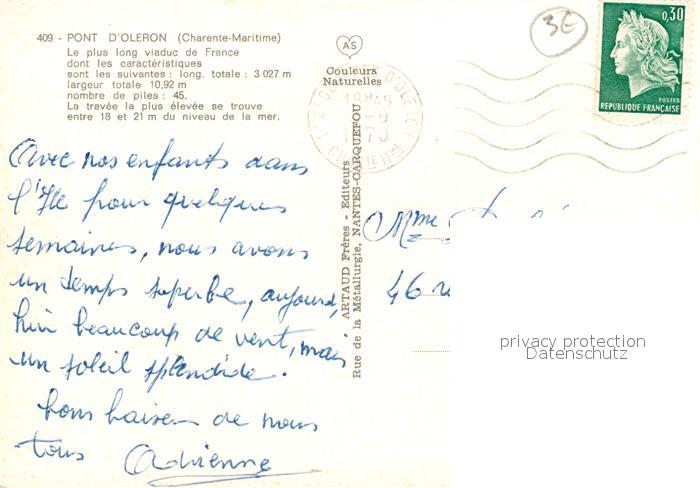 409 - PONT D'OLERON (Charente-Maritime)
Le plus long viaduc de France
dont les caractéristiques
sont les suivantes : long. totale : 3 027 m
largeur totale 10,92 m
nombre de piles : 45.
La travée la plus élevée se trouve
entre 18 et 21 m du niveau de la mer.
AS
Couleurs
Naturelles
3€
0,30
POSTES
REPUBLIQUE FRANÇAISE
18H45
-9
1970
D'OLERON
CHARENTE Mme
ARTAUD Frères - Editeurs
Rue de la Métallurgie, NANTES-CARQUEFOU
Avec nos enfants dans
l'Ile pour quelques
semaines, nous avons
un temps superbe, aujourd,
hui beaucoup de vent, mais
un soleil splendide.
bons baisers de nous
tous Adrienne
Mme
46
privacy protection
Datenschutz